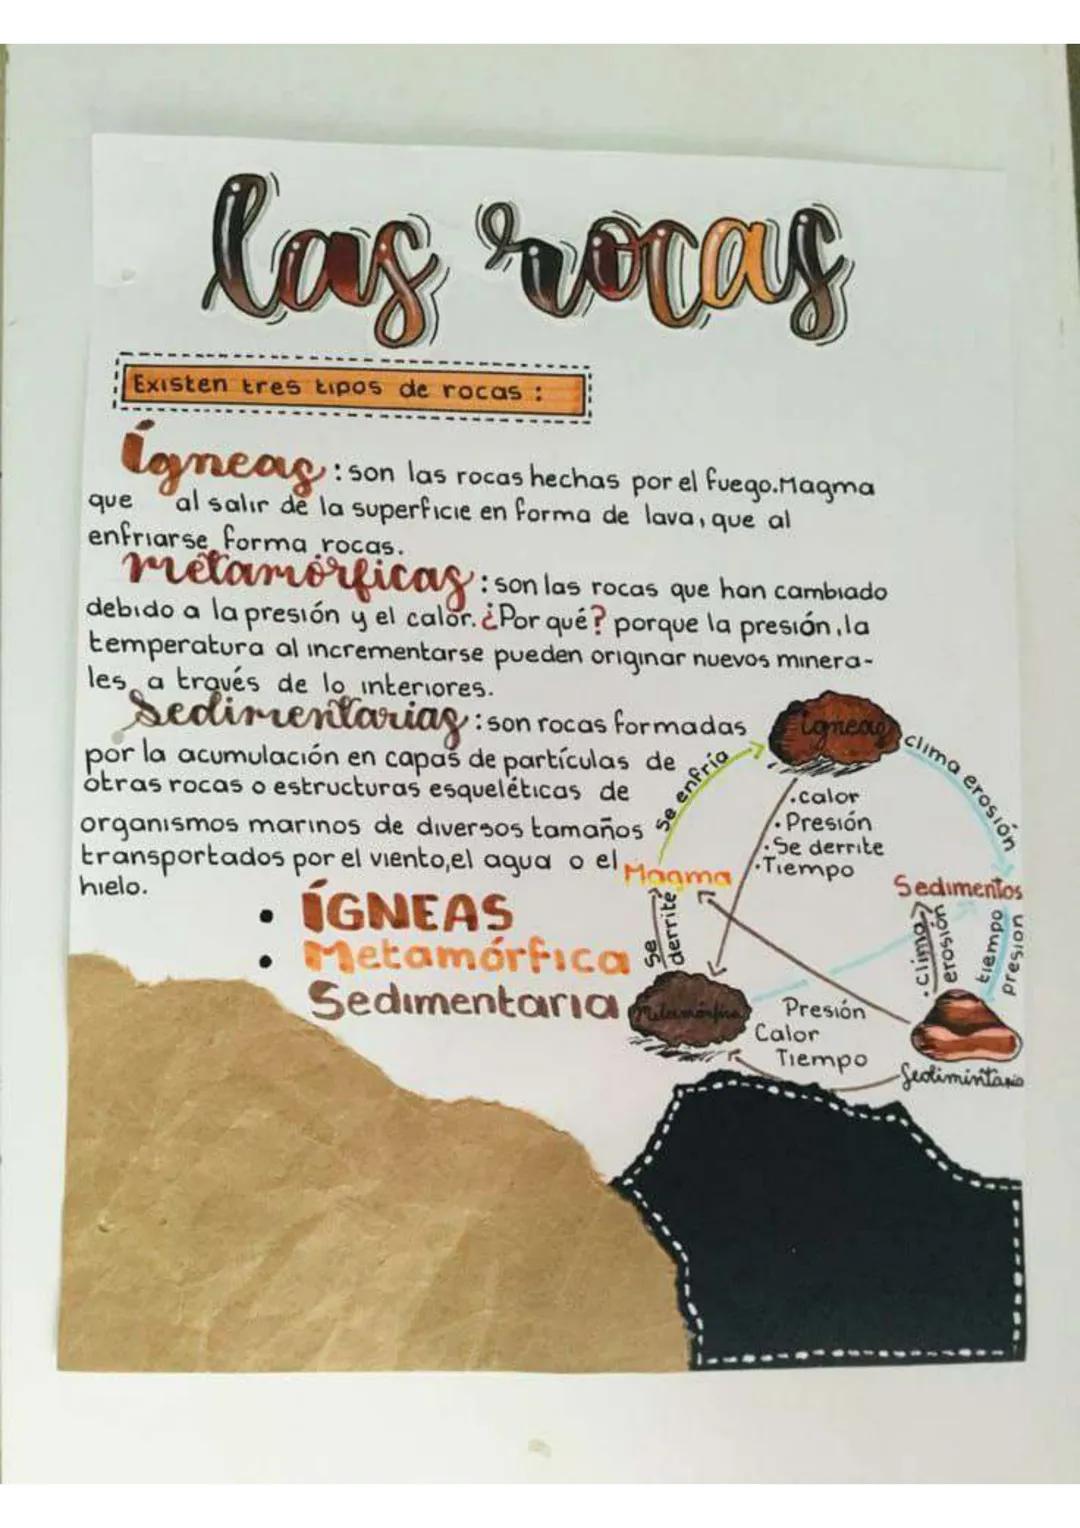 las rocas
Existen tres tipos de rocas :
Ígneas : son las rocas hechas por el fuego. Magma
que al salir de la superficie en forma de lava, que al
enfriarse forma rocas.
metamórficas : son las rocas que han cambiado
debido a la presión y el calor. ¿Por qué? porque la presión, la
temperatura al incrementarse pueden originar nuevos minera-
les a través de lo interiores.
Sedimentarias : son rocas formadas
por la acumulación en capas de partículas de
otras rocas o estructuras esqueléticas de
organismos marinos de diversos tamaños
transportados por el viento, el agua o el
hielo.
• ÍGNEAS
• Metamórfica
Sedimentaria
Ígneas
se enfría
clima erosión
.calor
• Presión
• Se derrite
•Tiempo
Magma
Sedimentos
se
derrite
. clima
erosión
tiempo
presion
Metamórfica
Presión
Calor
Tiempo
Sedimintaria